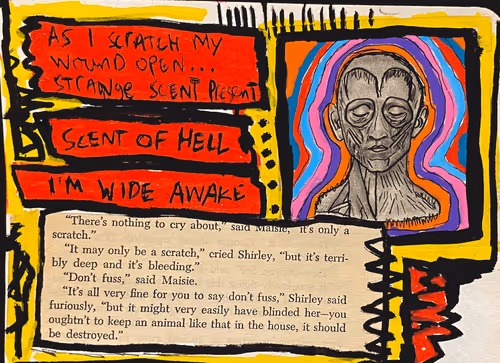 AS I SCRATCH MY
WOUND OPEN...
STRANGE SCENT PRESENT
SCENT OF HELL
I'M WIDE AWAKE
"There's nothing to cry about," said Maisie, "it's only a
scratch."
"It may only be a scratch," cried Shirley, "but it's terri-
bly deep and it's bleeding."
"Don't fuss," said Maisie.
"It's all very fine for you to say don't fuss," Shirley said
furiously, "but it might very easily have blinded her—you
oughtn't to keep an animal like that in the house, it should
be destroyed."